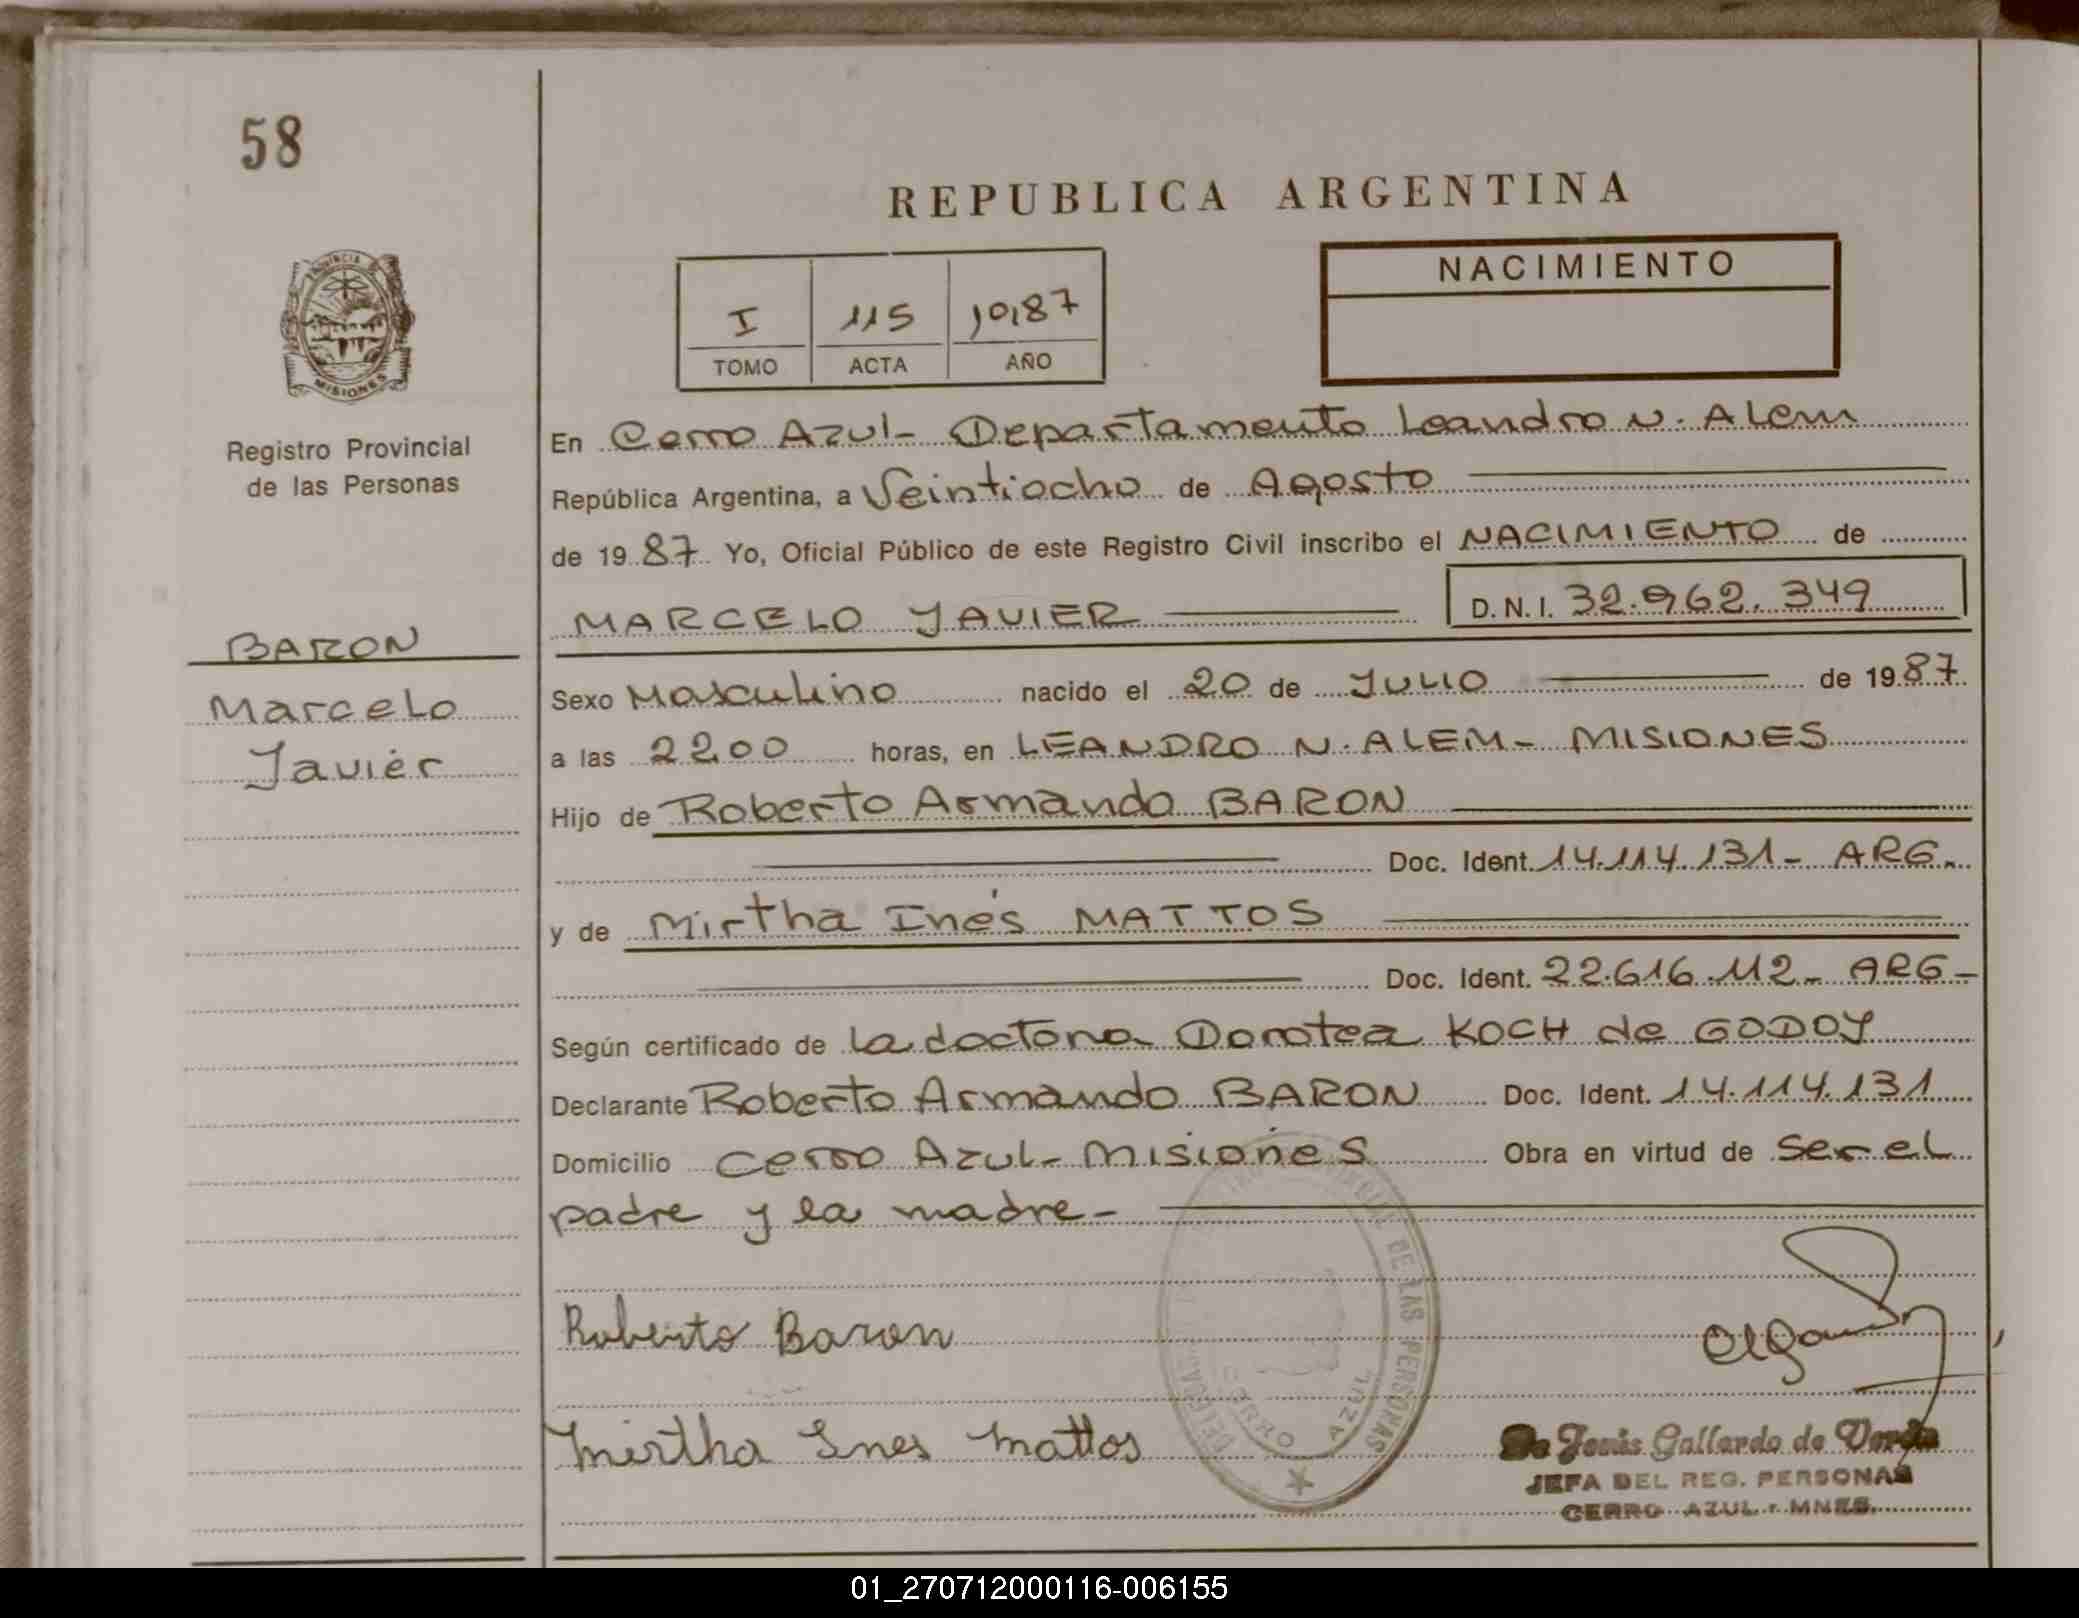 58
REPUBLICA ARGENTINA
NACIMIENTO
I 115 1987
TOMO ACTA AÑO
PROVINCIA DE
MISIONES
Registro Provincial
de las Personas
BARON
Marcelo
Javier
En Cerro Azul - Departamento Leandro N. Alem
República Argentina, a Veintiocho de Agosto
de 19 87 Yo, Oficial Público de este Registro Civil inscribo el NACIMIENTO de
MARCELO JAVIER D.N.I. 32.962.349
Sexo Masculino nacido el 20 de JULIO de 19 87
a las 22,00 horas, en LEANDRO N. ALEM - MISIONES
Hijo de Roberto Armando BARON
Doc. Ident. 14.114.131 - ARG.
y de Mirtha Inés MATTOS
Doc. Ident. 22.616.112 - ARG -
Según certificado de la doctora Dorotea KOCH de GODOY
Declarante Roberto Armando BARON Doc. Ident. 14.114.131
Domicilio Cerro Azul - Misiones Obra en virtud de ser el
padre y la madre -
Roberto Baron
Mirtha Ines Mattos
DE LAS PERSONAS
CERRO AZUL
Jesús Gallardo de
JEFA DEL REG. PERSONAS
CERRO AZUL - MNES.
01_270712000116-006155